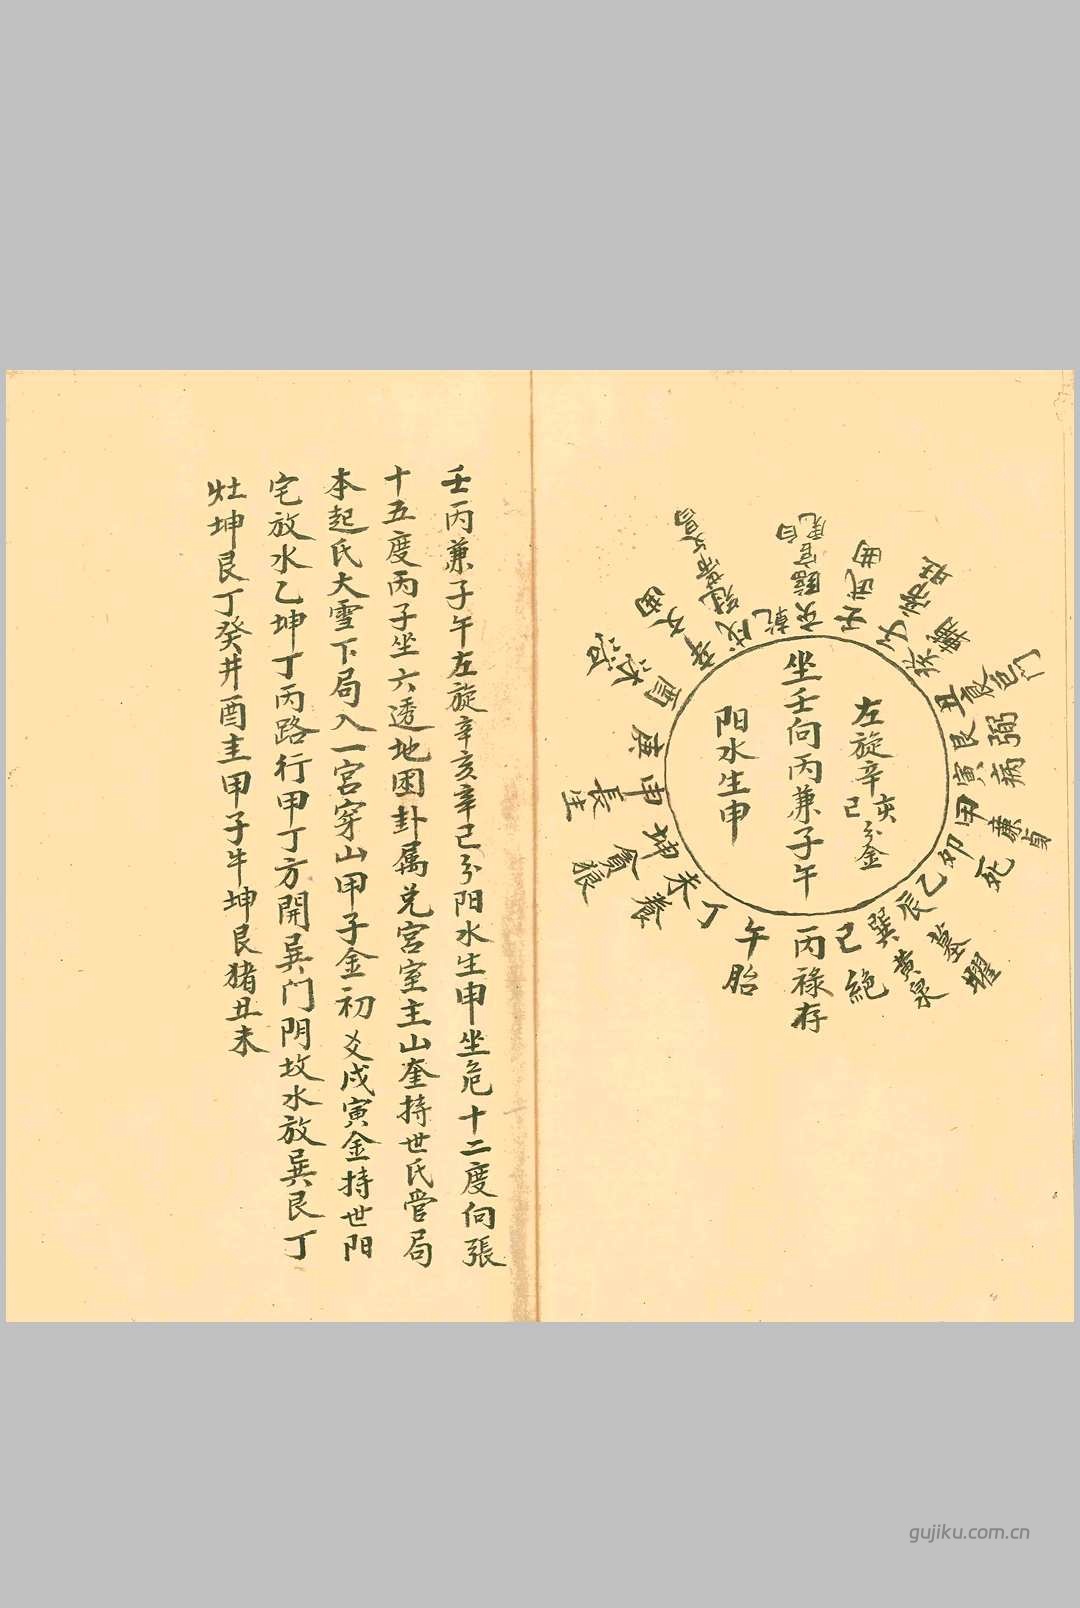 左旋辛亥巳分金
坐壬向丙兼子午
阳水生申
壬
武曲
子
帝旺
癸
丑
艮
巨门
艮
弼
寅
病
甲
廉貞
卯
死
乙
辰
墓
曜
巽
黃泉
巳
絕
丙
祿存
午
胎
丁
未
養
坤
貪狼
申
長生
庚
酉
沐浴
辛
文曲
戌
冠帶
文昌
乾
亥
臨官
壬丙兼子午左旋辛亥辛巳分阳水生申坐危十二度向張
十五度丙子坐六透地困卦属兑宮室主山奎持世氐管局
本起氐大雪下局入一宮穿山甲子金初爻戌寅金持世阳
宅放水乙坤丁丙路行甲丁方開巽门阴坟水放巽艮丁
灶坤艮丁癸井酉圭甲子牛坤艮猪丑未
gujiku.com.cn